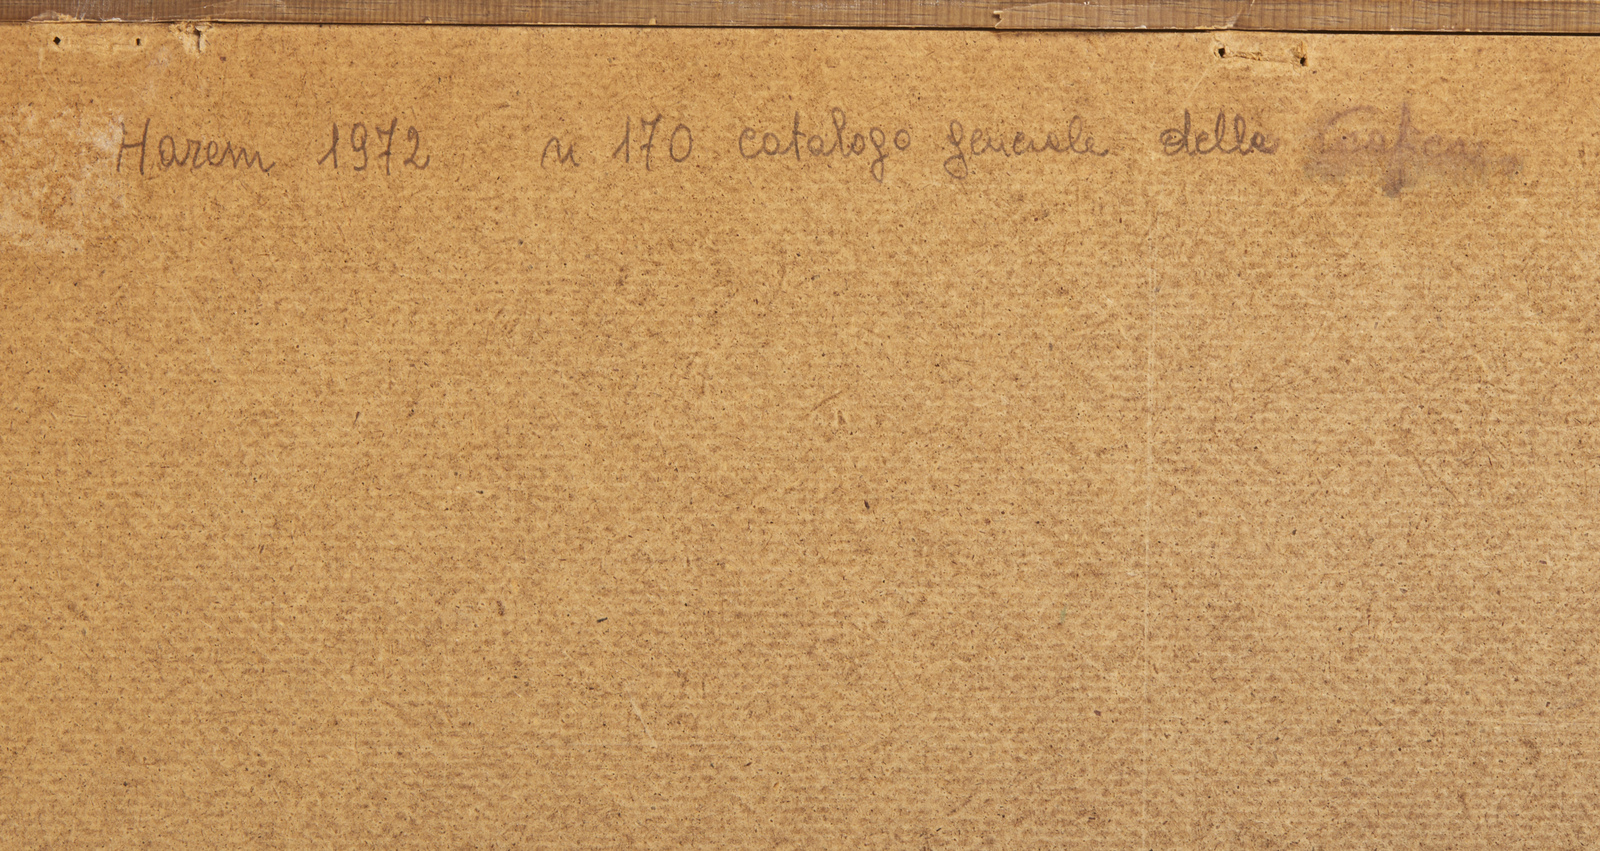 Harem 1972 n 170 catalogo generale della